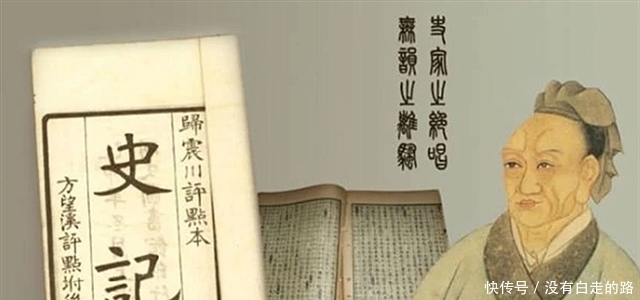 史家之絕唱
無韻之離騷
歸震川評點本
史記
方望溪評點坿後
快传号/没有白走的路